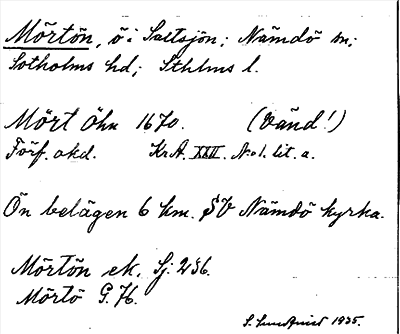 Mörtön, ö i Saltsjön; Nämdö sn;
Sotholms hd; Sthlms l.
Mört Öhn 1670. (Vänd!)
Förf. okd. KrA. XXII. No 1. lit. a.
Ön belägen 6 km. SV Nämdö kyrka.
Mörtön ek. Sj. 236.
Mörtö G.K.
S. Lundqvist 1935.